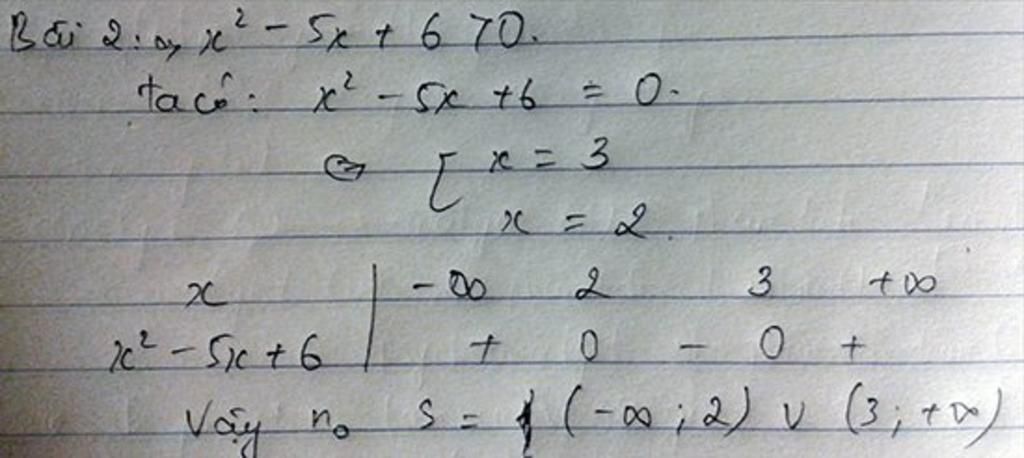 Bài 2: a, x² - 5x + 6 > 0.
ta có: x² - 5x + 6 = 0.
⇔ [ x = 3
x = 2.
x | -∞ 2 3 +∞
x² - 5x + 6 | + 0 - 0 +
Vậy n₀ S = (-∞; 2) ∪ (3; +∞)